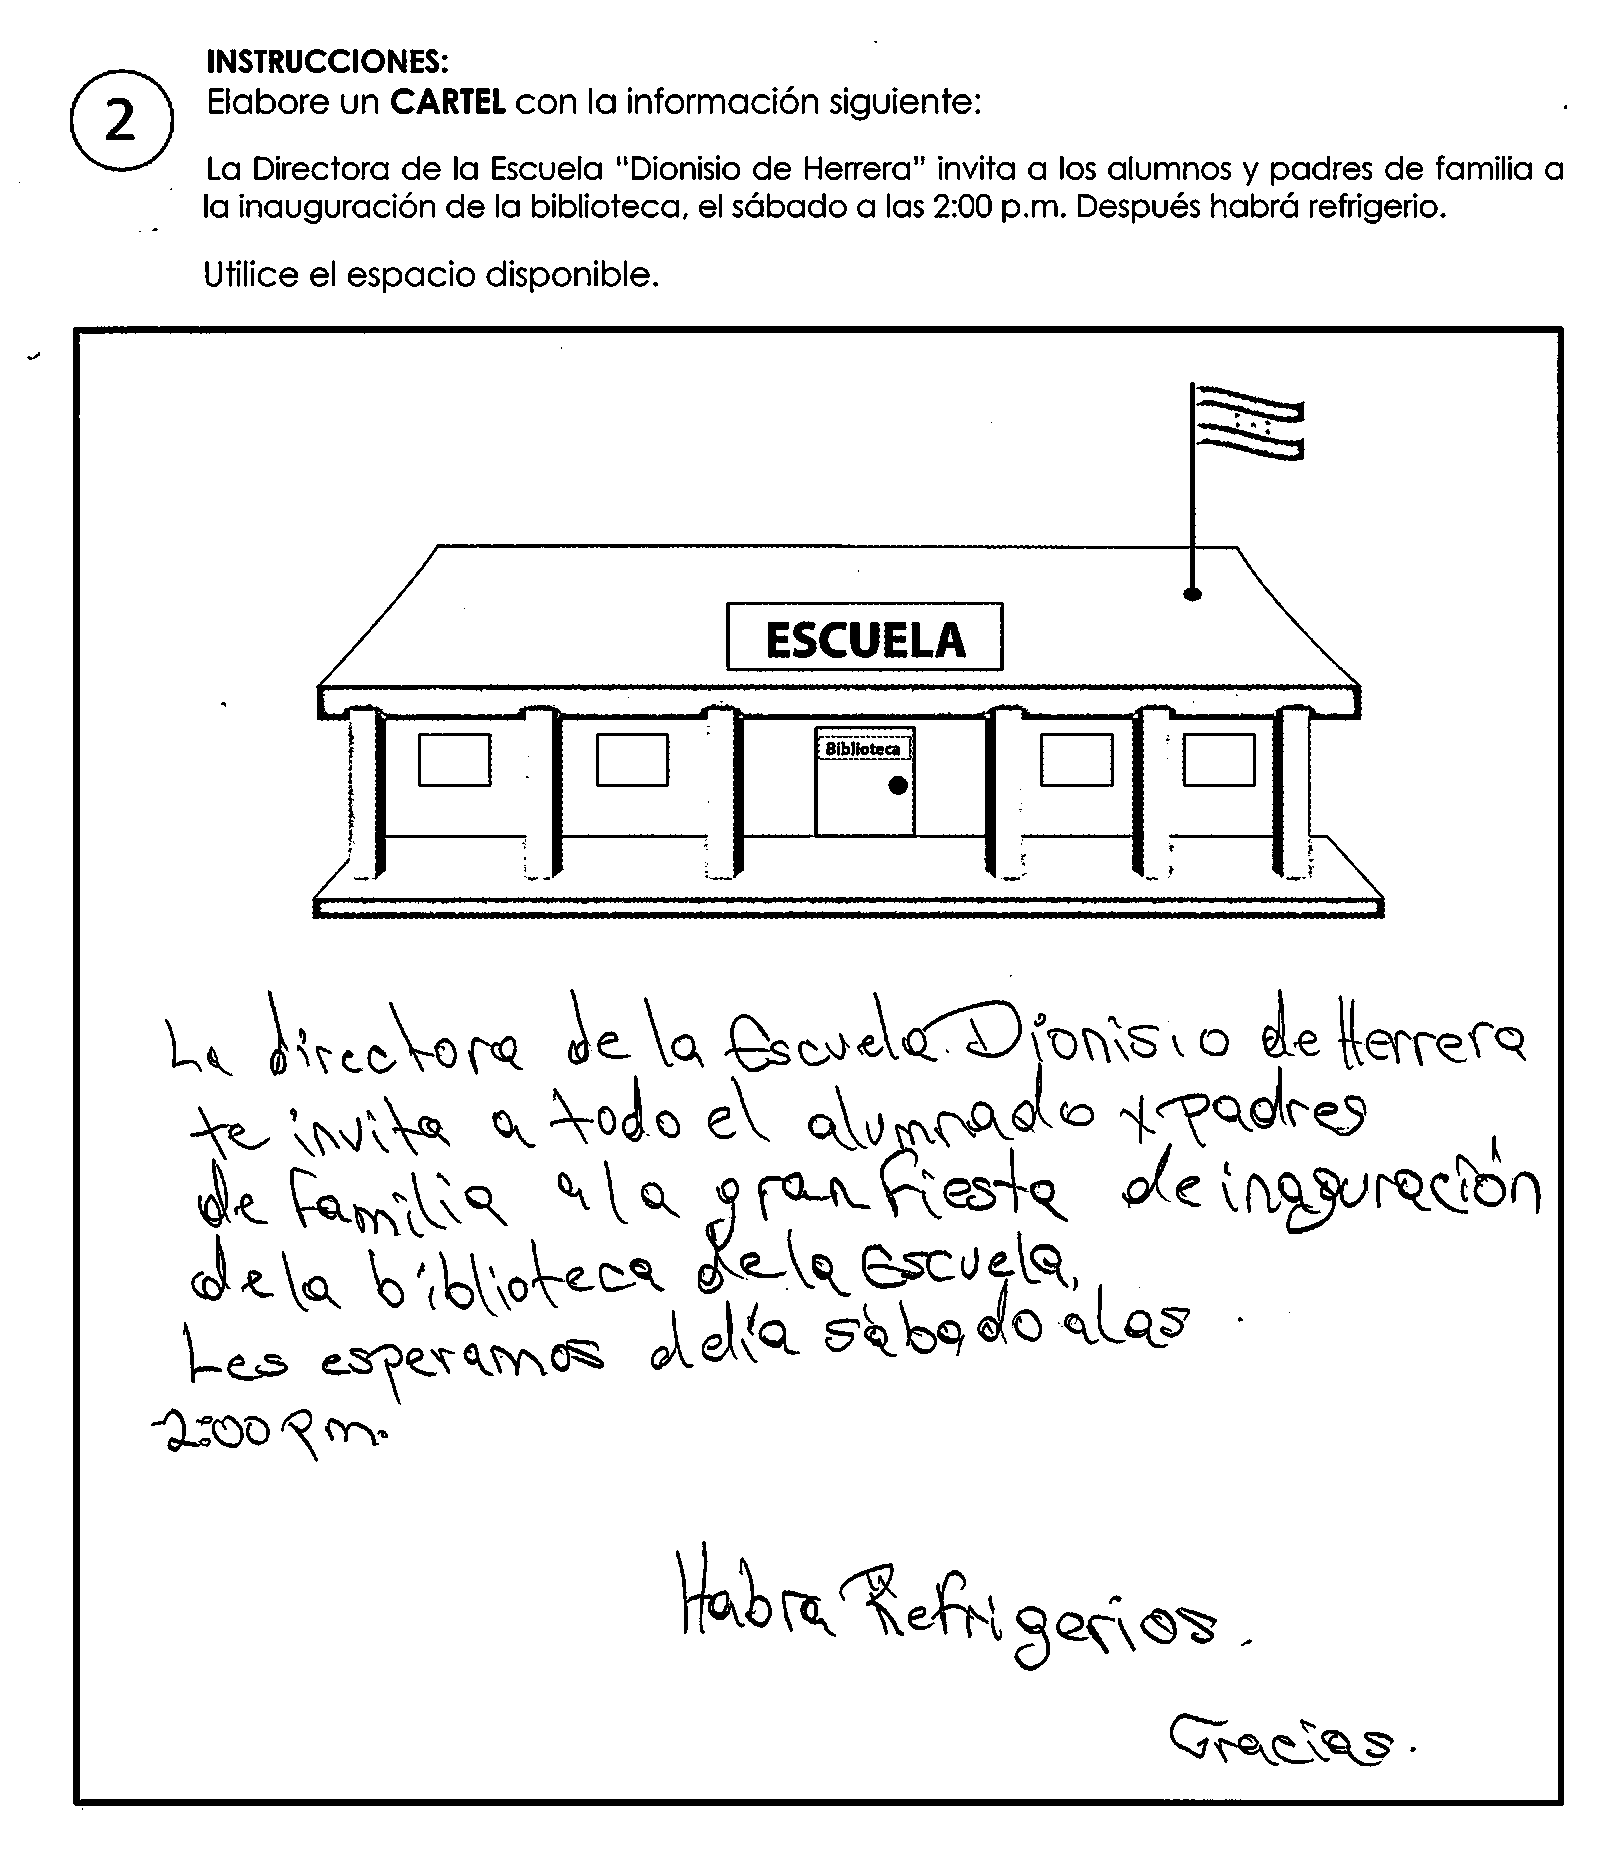 INSTRUCCIONES:
2
Elabore un CARTEL con la información siguiente:
La Directora de la Escuela "Dionisio de Herrera" invita a los alumnos y padres de familia a
la inauguración de la biblioteca, el sábado a las 2:00 p.m. Después habrá refrigerio.
Utilice el espacio disponible.
ESCUELA
Biblioteca
La directora de la Escuela Dionisio de Herrera
te invita a todo el alumnado y padres
de familia a la gran fiesta de inaguración
de la biblioteca de la Escuela,
Les esperamos el día sábado a las
2:00 pm.
Habra Refrigerios.
Gracias.